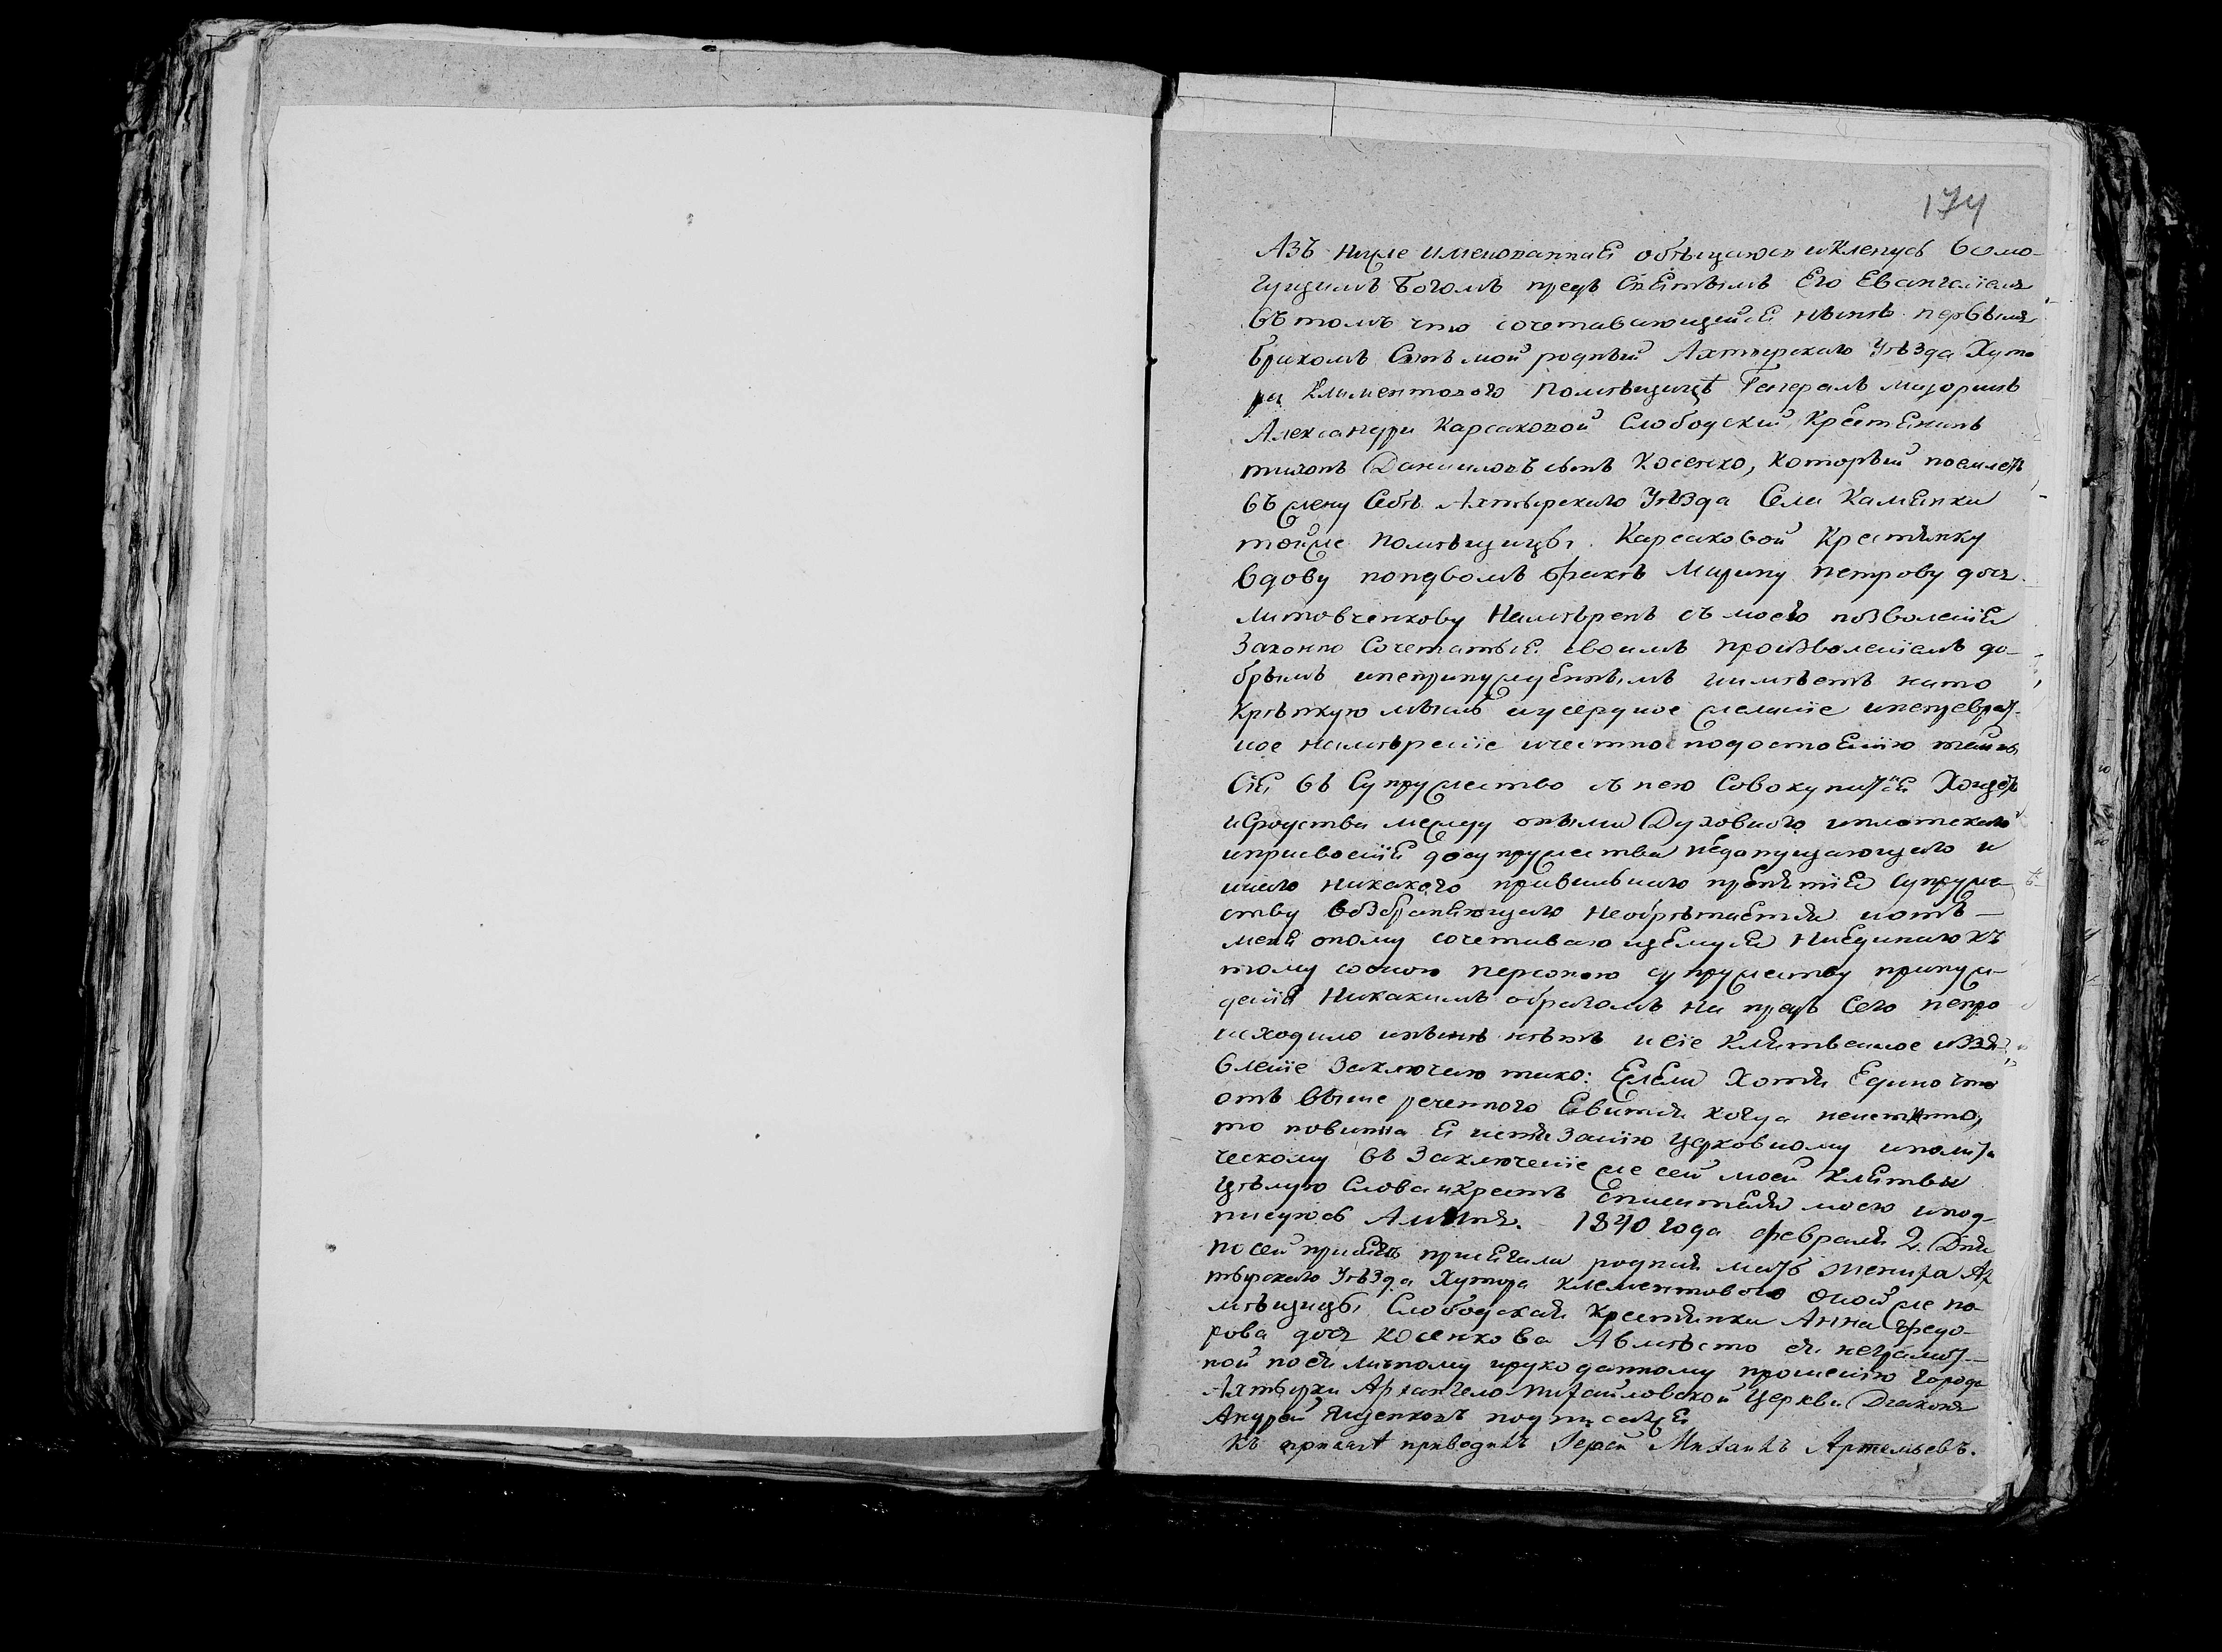 174
Азъ ниже именованная обѣщаюсь и кленусь всемо-
гущимъ Богомъ предъ Святымъ Его Евангелiемъ
въ томъ что сочетавающийся нынѣ первымъ
бракомъ сынъ мой родный Ахтырскаго Уѣзда Хуто
ра Климентового помѣщицѣ Генералъ маюоршѣ
Александры Карсаковой Слободский Крестянинъ
тихонъ Даниловъ сынъ Косенко, который поемлетъ
въ жену Себѣ Ахтырскаго Уѣзда Села Камянки
тойже помѣщицы Карсаковой Крестянку
вдову по првомъ бракѣ Марину петрову дочь
литовченкову Намѣренъ съ моего позволенiя
Законно Сочетаться своимъ произволенiемъ до-
брымъ и непринужденнымъ и имѣетъ на то
Крѣпкую мысль и усердное желанiе и непреврат-
ное намѣренiе и честно по достоянiю тайны
сiя въ Супружество съ нею Совокупитися Хощетъ
и Сродства между оными Духовного и плотскаго
и присвоенiя до супружества недопущающаго и
инаго никакого правильнаго препятiя супруже
ству возбраняющаго Необрѣтается и отъ
меня оному сочетавающемуся Ни единаго къ
тому со оною персоною супружеству принуж-
денiя Никакимъ образомъ ни предъ Сего непро
исходило и нынѣ нѣтъ и сiе Клятвенное изъя-
вленiе Заключаю тако: Ежели Хотя Едино что
отъ выше реченного Явится когда неистинно,
то повинна я истязанiю церковному и полити
ческому въ Заключенiе же сей моей Клятвы
Цѣлую Слова и Крестъ Спасителя моего и под-
писуюсь Аминь. 1840 года февраля 2. Дня
По сей присягѣ присягала родная мать жениха Ах
тырскаго Уѣзда Хутора Клементового оной же по-
мѣщицы Слободская Крестянка Анна федо-
рова дочь Косенкова А вмѣсто ея неграмот-
ной по ея личному и рукоданному прошенiю города
Ахтырки Архангело-Михайловской Церкви Дiаконъ
Андрей Ященковъ подписался
Къ присягѣ приводилъ Iерей Михаилъ Артемьевъ.